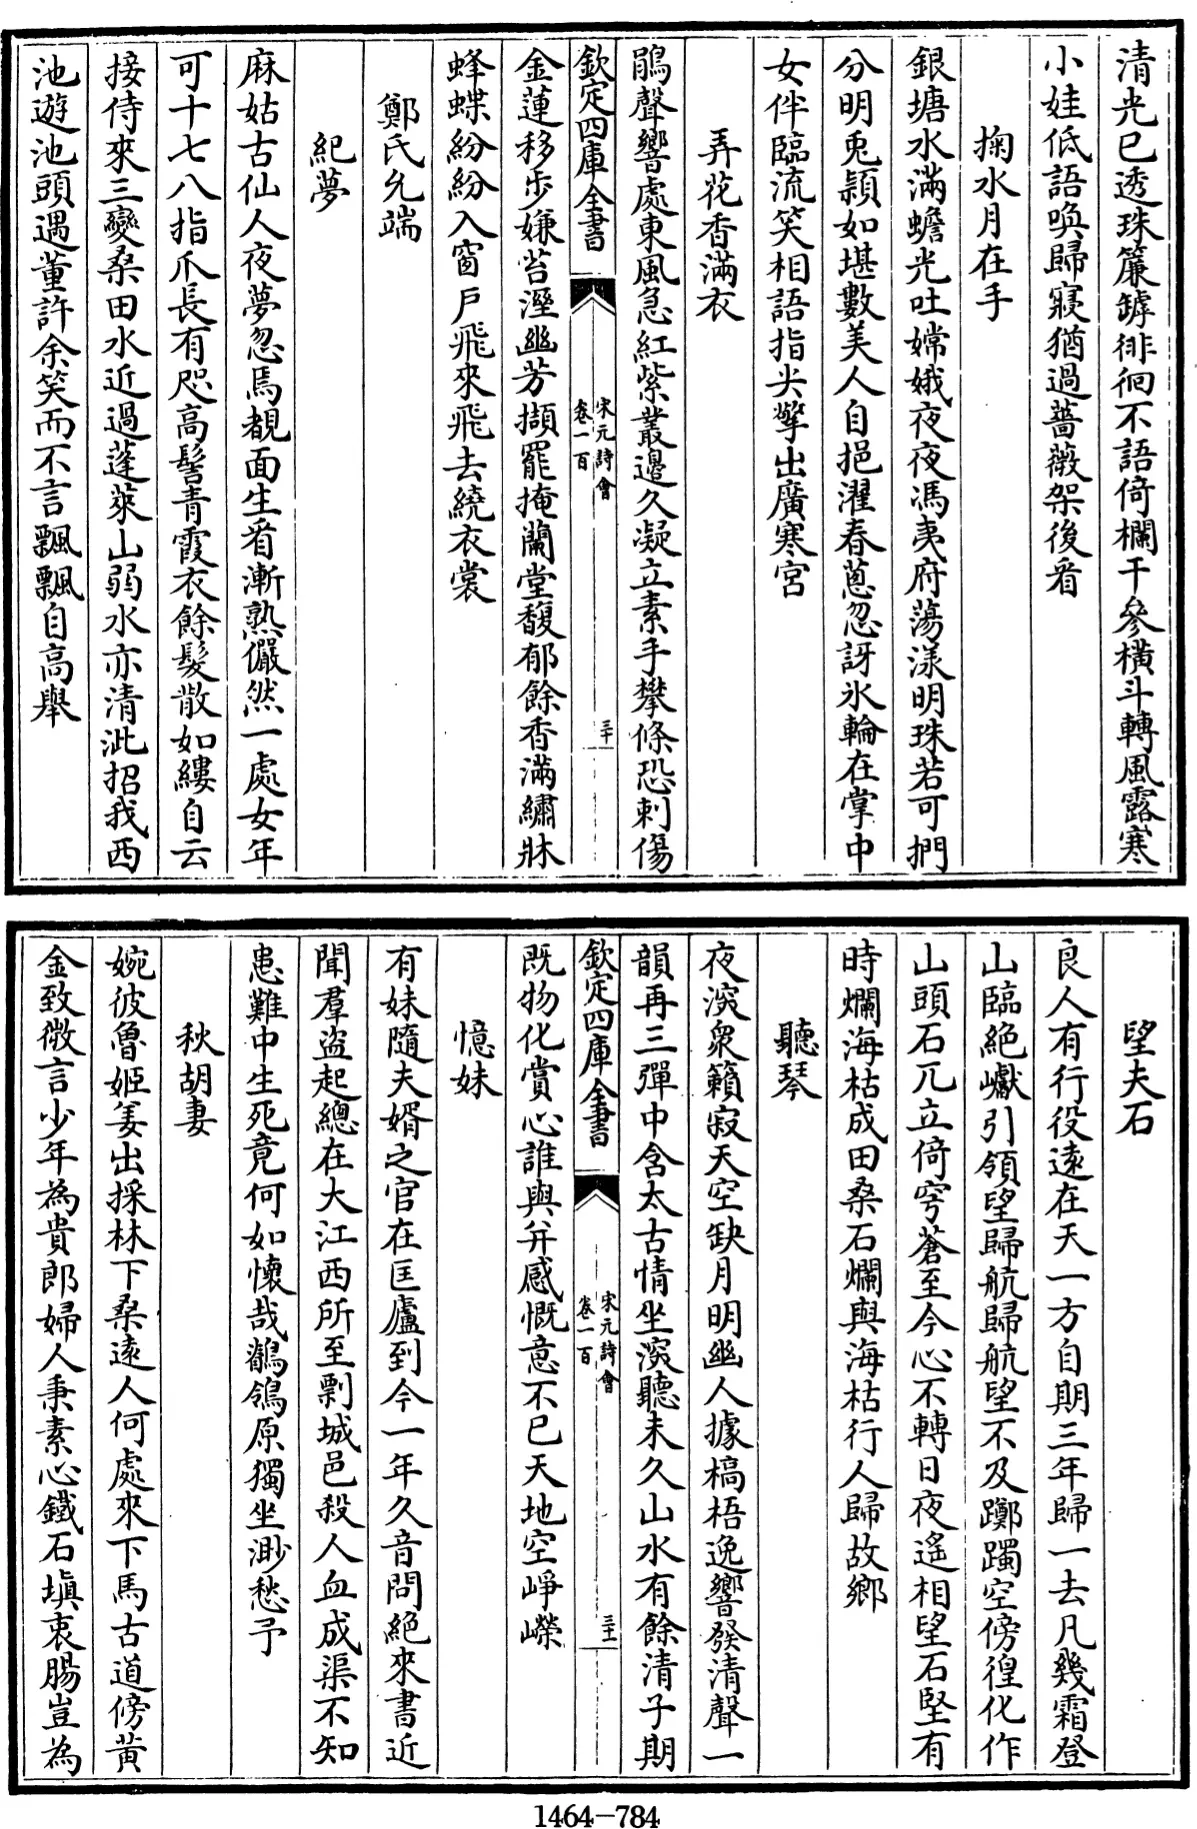 清光已透珠簾罅徘徊不語倚欄干參橫斗轉風露寒
小娃低語喚歸寢猶過薔薇架後看
掬水月在手
銀塘水滿蟾光吐嫦娥夜夜馮夷府蕩漾明珠若可捫
分明兎頴如堪數美人自挹濯春葱忽訝氷輪在掌中
女伴臨流笑相語指尖擎出廣寒宮
弄花香滿衣
鵑聲響處東風急紅紫叢邊久凝立素手攀條恐刺傷
欽定四庫全書
宋元詩會
卷一百
三十
金蓮移步嫌苔溼幽芳擷罷掩蘭堂馥郁餘香滿繡牀
蜂蝶紛紛入窗戶飛來飛去繞衣裳
鄭氏允端
紀夢
麻姑古仙人夜夢忽焉覩面生看漸熟儼然一處女年
可十七八指爪長有咫高髻青霞衣餘髮散如縷自云
接侍來三變桑田水近過蓬萊山弱水亦清泚招我西
池遊池頭遇董許余笑而不言飄飄自高舉
望夫石
良人有行役逺在天一方自期三年歸一去凡幾霜登
山臨絶巘引領望歸航歸航望不及躑躅空傍徨化作
山頭石兀立倚穹蒼至今心不轉日夜遙相望石堅有
時爛海枯成田桑石爛與海枯行人歸故鄉
聽琴
夜深衆籟寂天空缺月明幽人據槁梧逸響發清聲一
韻再三彈中含太古情坐深聽未久山水有餘清子期
欽定四庫全書
宋元詩會
卷一百
三十一
既物化賞心誰與并感慨意不已天地空崢嶸
憶妹
有妹隨夫婿之官在匡廬到今一年久音問絶來書近
聞羣盗起總在大江西所至剽城邑殺人血成渠不知
患難中生死竟何如懷哉鶺鴒原獨坐渺愁予
秋胡妻
婉彼魯姬姜出採林下桑逺人何處來下馬古道傍黄
金致微言少年為貴郎婦人秉素心鐵石填衷腸豈為
1464-784